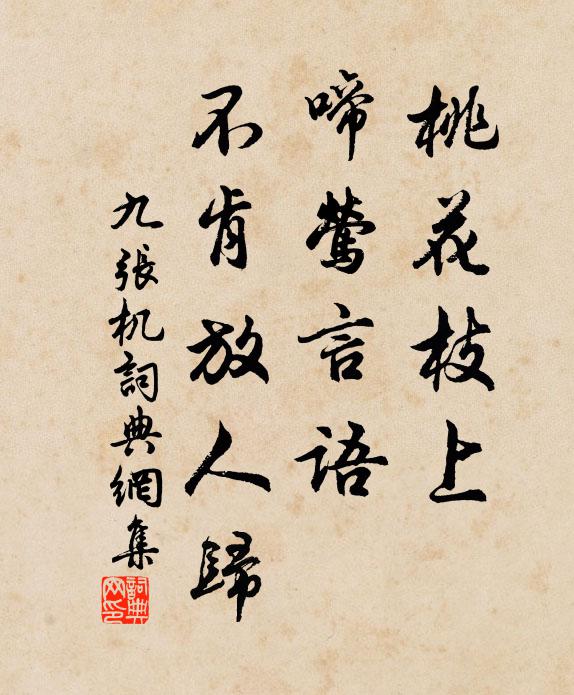 桃花枝上
啼鶯言語
不肯放人歸
九張机詞典網集
詞典網印